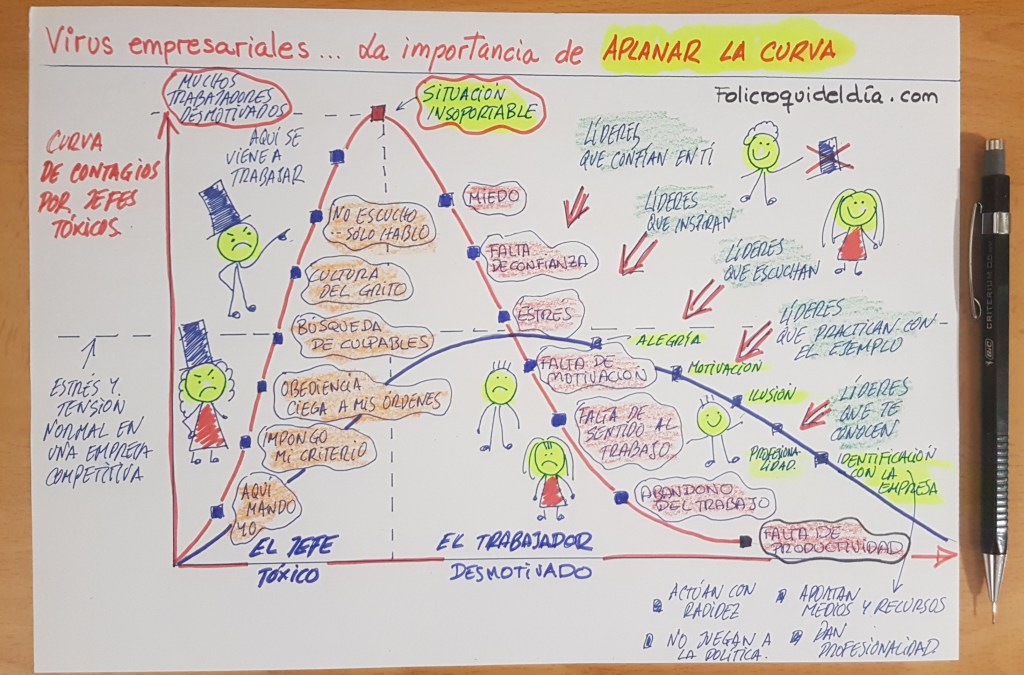 Virus empresariales... La importancia de APLANAR LA CURVA
Folicroquideldía.com
MUCHOS
TRABAJADORES
DESMOTIVADOS
SITUACIÓN
INSOPORTABLE
CURVA
DE CONTAGIOS
POR JEFES
TÓXICOS
AQUÍ SE
VIENE A
TRABAJAR
NO ESCUCHO
.. SOLO HABLO
CULTURA
DEL GRITO
BÚSQUEDA
DE CULPABLES
OBEDIENCIA
CIEGA A MIS ÓRDENES
IMPONGO
MI CRITERIO
AQUÍ
MANDO
YO
ESTRÉS Y
TENSION
NORMAL EN
UNA EMPRESA
COMPETITIVA
MIEDO
FALTA
DE CONFIANZA
ESTRES
FALTA DE
MOTIVACIÓN
FALTA DE
SENTIDO AL
TRABAJO
ABANDONO
DEL TRABAJO
FALTA DE
PRODUCTIVIDAD
LÍDERES
QUE CONFÍAN EN TI
LÍDERES
QUE INSPIRAN
LÍDERES
QUE ESCUCHAN
LÍDERES
QUE PRACTICAN CON
EL EJEMPLO
LÍDERES
QUE TE
CONOCEN
ALEGRÍA
MOTIVACION
ILUSIÓN
PROFESIONA
LIDAD.
IDENTIFICACIÓN
CON LA
EMPRESA
EL JEFE
TÓXICO
EL TRABAJADOR
DESMOTIVADO
ACTÚAN CON
RADIDEZ
NO JUEGAN A
LA POLÍTICA.
APORTAN
MEDIOS Y RECURSOS
DAN
PROFESIONALIDAD.
BIC CRITERIUM